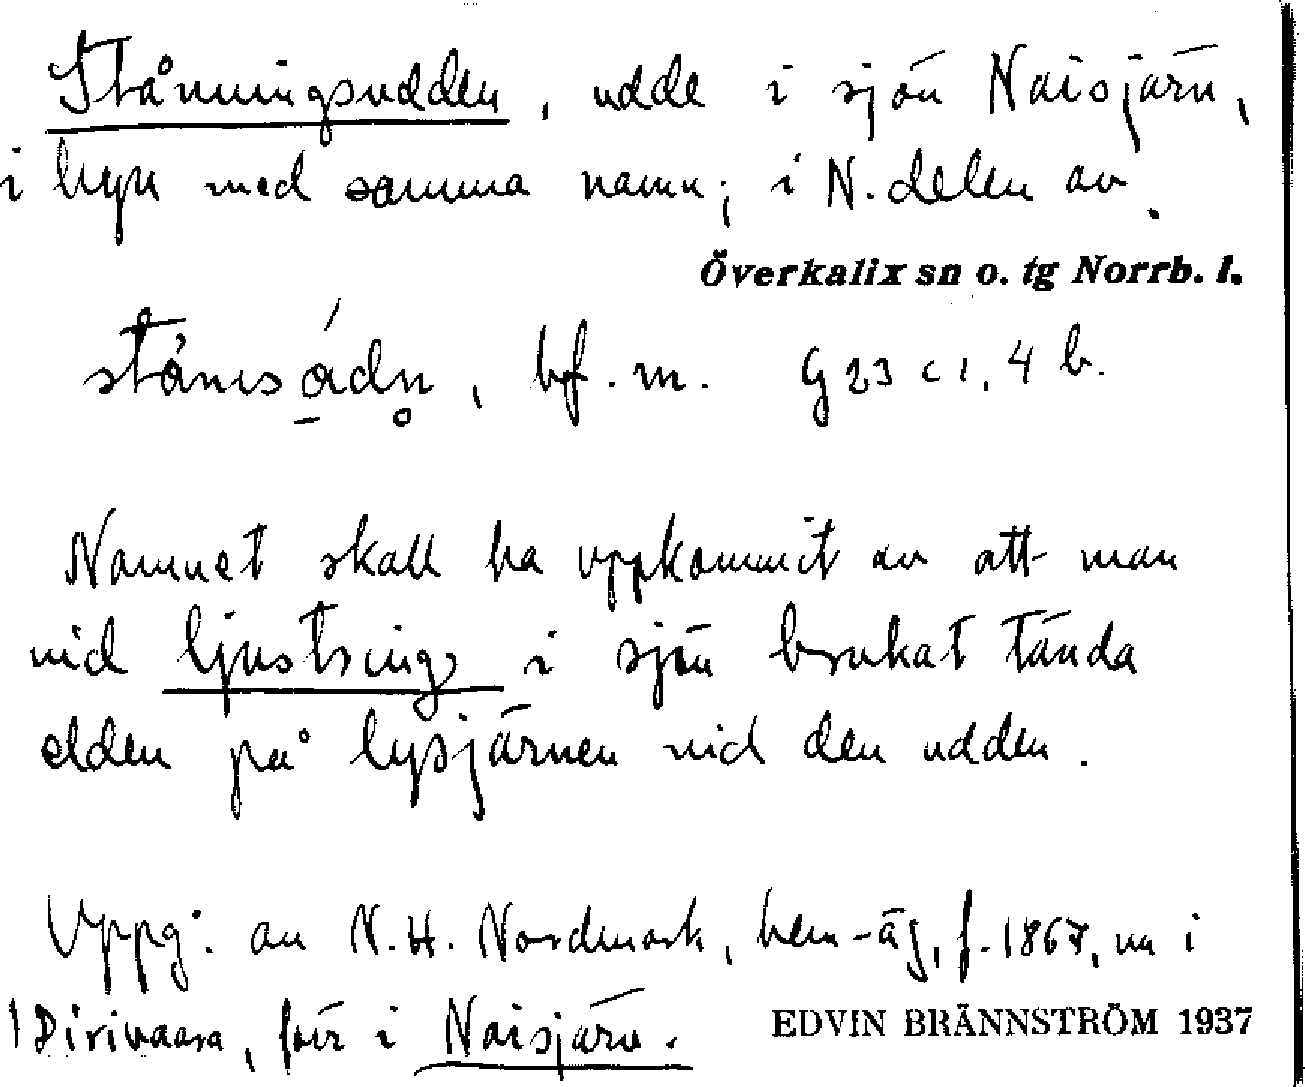 Stånningsudden, udde i sjön Naisjärv,
i byn med samma namn; i N. delen av
Överkalix sn o. tg Norrb. l.
bf. m. G 23 c 1, 4 b.
Namnet skall ha uppkommit av att man
vid ljustring i sjön brukat tända
elden på lysjärnen vid den udden.
Uppg: av N. H. Nordmark, hem-äg, f. 1867, nu i
Dirivaara, förr i Naisjärv.
EDVIN BRÄNNSTRÖM 1937